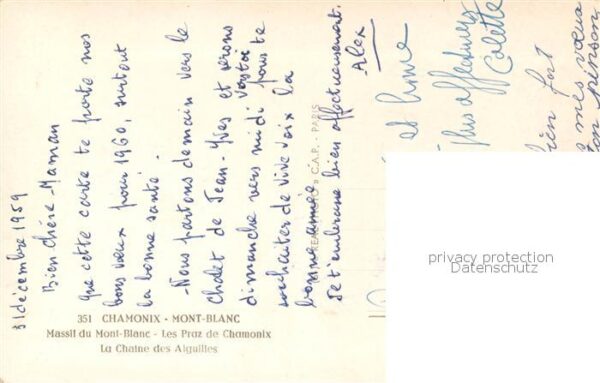 31 décembre 1959
Bien chère Maman
que cette carte te porte nos
bons vœux pour 1960, surtout
la bonne santé -
- Nous partons demain vers le
Chalet de Jean-Yves et serons
dimanche vers midi pour te
souhaiter de vive voix la
bonne année
Je t'embrasse bien affectueusement.
Alex
et Irène
plus affectueux
Colette
bien fort
mes vœux
ton
351 CHAMONIX - MONT-BLANC
Massif du Mont-Blanc - Les Praz de Chamonix
La Chaine des Aiguilles
C.A.P. - PARIS
privacy protection
Datenschutz